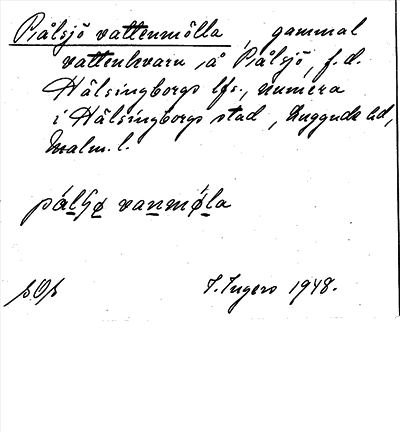 Pålsjö vattenmölla, gammal
vattenkvarn å Pålsjö, f.d.
Hälsingborgs lfs., numera
i Hälsingborgs stad, Luggude hd,
Malm. l.
pålʃø vanmøla
sOs
I. Ingers 1948.